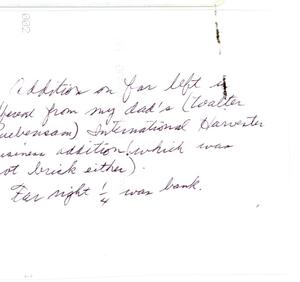 002
Addition on far left is
from my dad's (Walter
International Harvester
addition (which was
not brick either).
Far right 1/4 was bank.